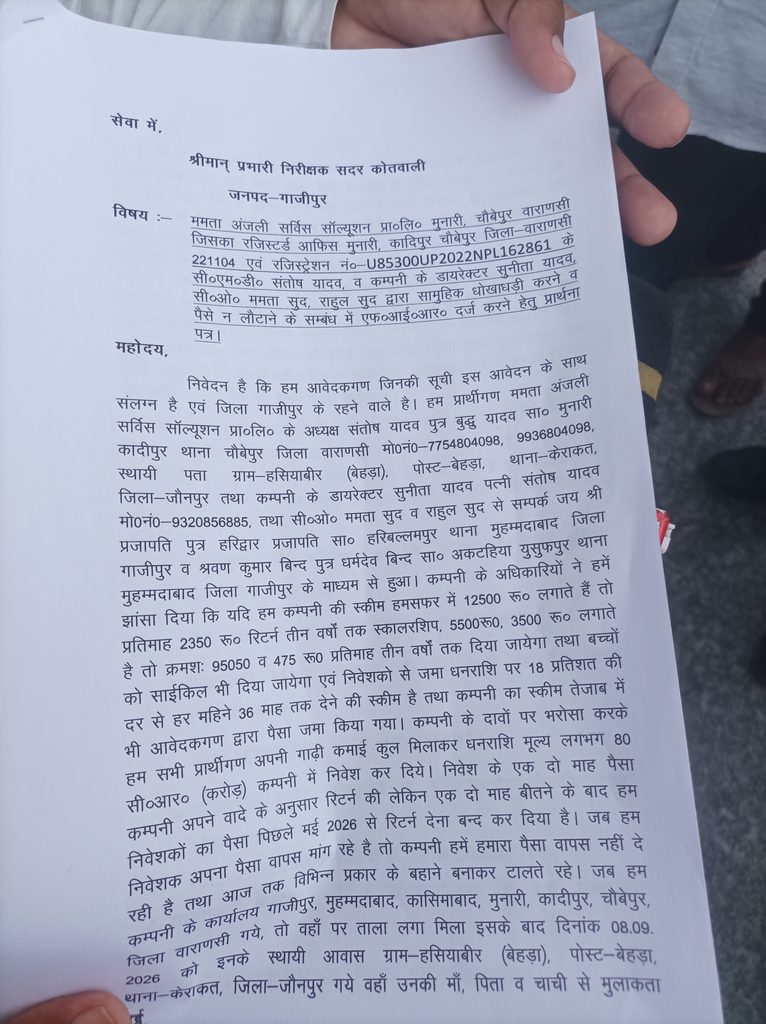 सेवा में,
श्रीमान् प्रभारी निरीक्षक सदर कोतवाली
जनपद–गाजीपुर
विषय :– ममता अंजली सर्विस सॉल्यूशन प्रा०लि० मुनारी, चौबेपुर वाराणसी
जिसका रजिस्टर्ड आफिस मुनारी, कादिपुर चौबेपुर जिला–वाराणसी
221104 एवं रजिस्ट्रेशन नं०–U85300UP2022NPL162861 के
सी०एम०डी० संतोष यादव, व कम्पनी के डायरेक्टर सुनीता यादव,
सी०ओ० ममता सुद, राहुल सुद द्वारा सामुहिक धोखाधड़ी करने व
पैसे न लौटाने के सम्बंध में एफ०आई०आर० दर्ज करने हेतु प्रार्थना
पत्र।
महोदय,
निवेदन है कि हम आवेदकगण जिनकी सूची इस आवेदन के साथ
संलग्न है एवं जिला गाजीपुर के रहने वाले है। हम प्रार्थीगण ममता अंजली
सर्विस सॉल्यूशन प्रा०लि० के अध्यक्ष संतोष यादव पुत्र बुद्धु यादव सा० मुनारी
कादीपुर थाना चौबेपुर जिला वाराणसी मो0नं0–7754804098, 9936804098,
स्थायी पता ग्राम–हसियाबीर (बेहड़ा), पोस्ट–बेहड़ा, थाना–केराकत,
जिला–जौनपुर तथा कम्पनी के डायरेक्टर सुनीता यादव पत्नी संतोष यादव
मो0नं0–9320856885, तथा सी०ओ० ममता सुद व राहुल सुद से सम्पर्क जय श्री
प्रजापति पुत्र हरिद्वार प्रजापति सा० हरिबल्लमपुर थाना मुहम्मदाबाद जिला
गाजीपुर व श्रवण कुमार बिन्द पुत्र धर्मदेव बिन्द सा० अकटहिया युसुफपुर थाना
मुहम्मदाबाद जिला गाजीपुर के माध्यम से हुआ। कम्पनी के अधिकारियों ने हमें
झांसा दिया कि यदि हम कम्पनी की स्कीम हमसफर में 12500 रू० लगाते हैं तो
प्रतिमाह 2350 रू० रिटर्न तीन वर्षों तक स्कालरशिप, 5500रू0, 3500 रू० लगाते
है तो क्रमशः 95050 व 475 रू0 प्रतिमाह तीन वर्षों तक दिया जायेगा तथा बच्चों
को साईकिल भी दिया जायेगा एवं निवेशको से जमा धनराशि पर 18 प्रतिशत की
दर से हर महिने 36 माह तक देने की स्कीम है तथा कम्पनी का स्कीम तेजाब में
भी आवेदकगण द्वारा पैसा जमा किया गया। कम्पनी के दावों पर भरोसा करके
हम सभी प्रार्थीगण अपनी गाढ़ी कमाई कुल मिलाकर धनराशि मूल्य लगभग 80
सी०आर० (करोड़) कम्पनी में निवेश कर दिये। निवेश के एक दो माह पैसा
कम्पनी अपने वादे के अनुसार रिटर्न की लेकिन एक दो माह बीतने के बाद हम
निवेशकों का पैसा पिछले मई 2026 से रिटर्न देना बन्द कर दिया है। जब हम
निवेशक अपना पैसा वापस मांग रहे है तो कम्पनी हमें हमारा पैसा वापस नहीं दे
रही है तथा आज तक विभिन्न प्रकार के बहाने बनाकर टालते रहे। जब हम
कम्पनी के कार्यालय गाजीपुर, मुहम्मदाबाद, कासिमाबाद, मुनारी, कादीपुर, चौबेपुर,
जिला वाराणसी गये, तो वहाँ पर ताला लगा मिला इसके बाद दिनांक 08.09.
2026 को इनके स्थायी आवास ग्राम–हसियाबीर (बेहड़ा), पोस्ट–बेहड़ा,
थाना–केराकत, जिला–जौनपुर गये वहाँ उनकी माँ, पिता व चाची से मुलाकता